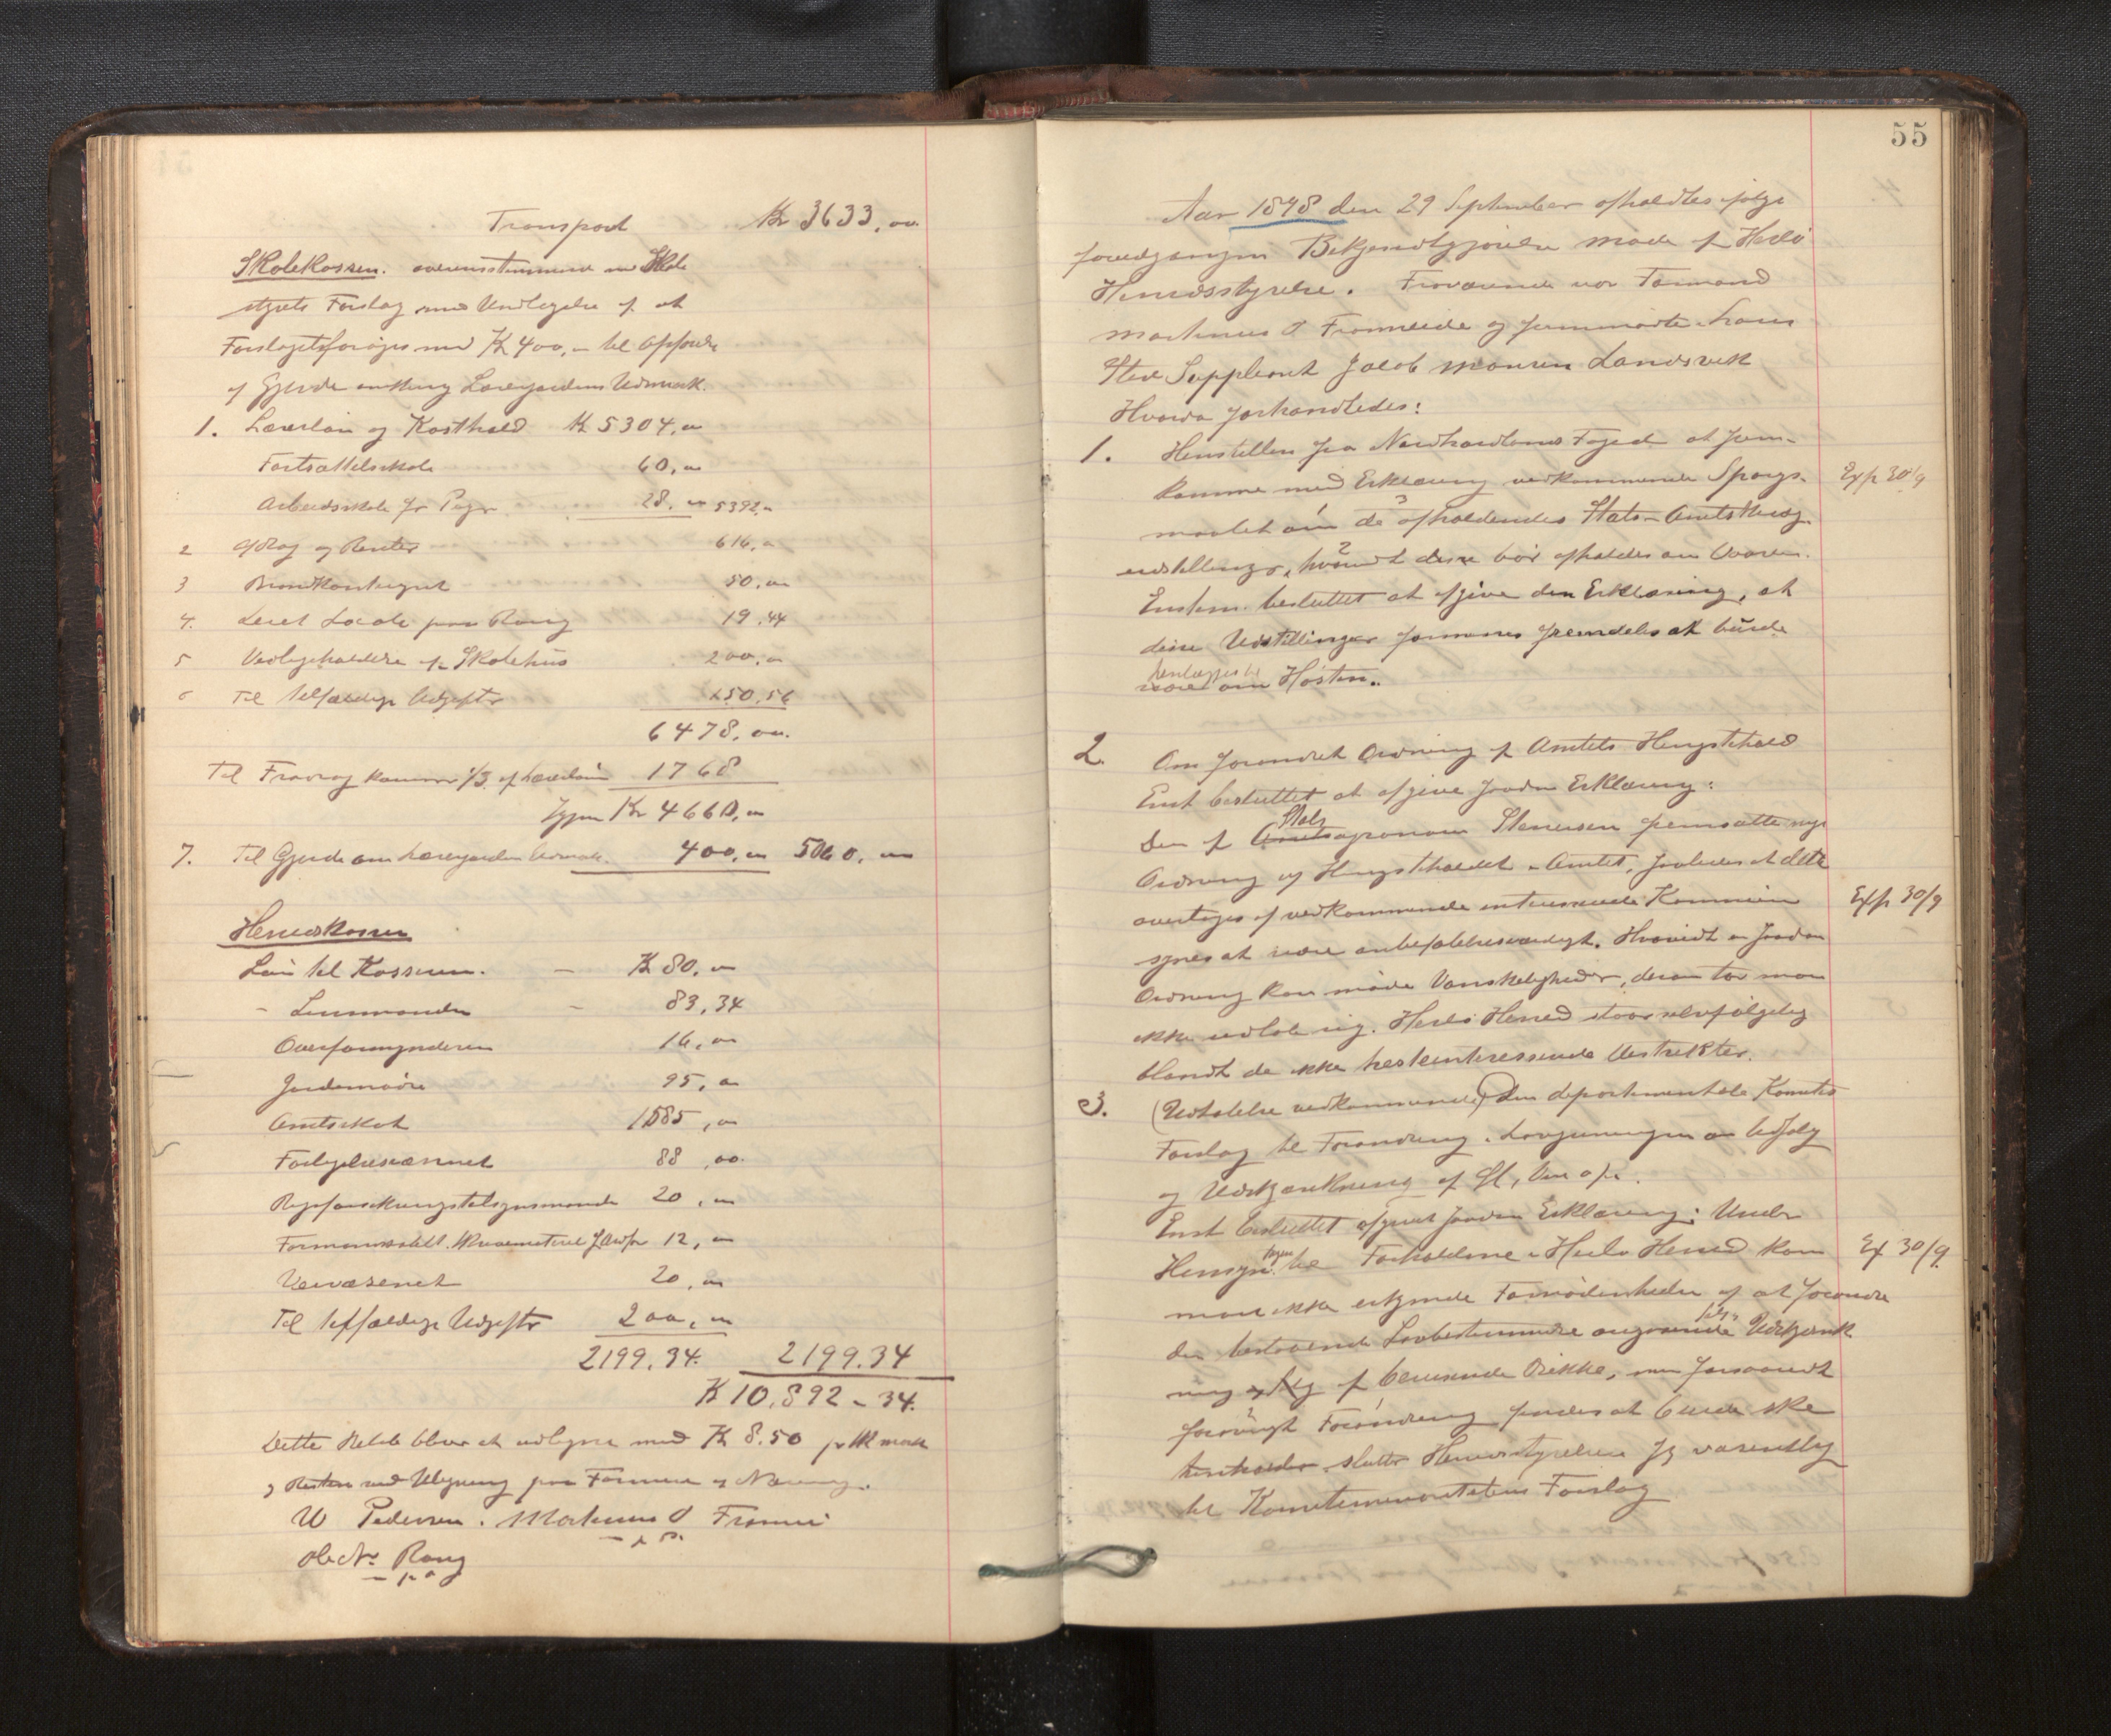 Transport Kr 3633,00
Skolekassen. overensstemmende med Skole
styrets Forslag med Undtagelse af at
Forslaget forøges med Kr 400,00 til Opførelse
af Gjerde omkring Lærerjordens Udmark.
1. Lærerløn og Kosthold Kr 5304,00
Fortsættelsesskole 60,00
Arbeidsskole for Piger 28,00 5392,00
2 Afdrag og Renter 616,00
3 Brandkontingent 50,00
4. Leiet Locale paa Rong 19,44
5 Vedligeholdelse af Skolehus 200,00
6 Til tilfældige Udgifter 250,56
6478,00.
Til Fradrag kommer 1/3 af Lærerløn 1768
Igjen Kr 4660,00
7. Til Gjerde om Lærerjorden Udmark. 400,00 5060,00
Heredskassen
Løn til Kasseren. - Kr 80,00
- Lensmanden - 83,34
Overformynderen 16,00
Jordemødre 95,00
Amtsskat 1585,00
Forligelsesvæsenet 88,00
Røgsforsikringstilsynsmænd 20,00
Formandskabet Skrivemateriel Indkjøb 12,00
Veivæsenet 20,00
Til tilfældige Udgifter 200,00
2199.34. 2199.34
Kr 10,892-34.
Dette Beløb blir at udligne med Kr 8.50 pr Skmark
og Resten ved Udligning paa Formue og Næring.
W Pedersen. Martinus O Fromrei
m. p. P.
Ole Ns Rong
m. p. P.
55
Aar 1898 den 29 September afholdtes ifølge
foregangen Bekjendtgjørelse møde af Herlø
Heredsstyrelse. Fraværende var Formand
Martinus O Fromreide og fremmødte i hans
Sted Suppleant Jacob Monsen Landsvik
Hvorda forhandledes:
1. Henstillen fra Nordhordlands Foged at frem-
komme med Erklæring vedkommende Spørgs-
maalet om de 3 afholdendes Stats-Amtskvæg- Exp 30/9
udstillinger, hvorvidt 2 disse bør afholdes om Vaaren.
Enstem. besluttet at afgive den Erklæring, at
disse Udstillinger formenes fremdeles at burde
henlægges til
være om Høsten.
2. Om forandret Ordning af Amtets Hengstehold
Enst besluttet at afgive saadan Erklæring:
Stats
Den af Amtsagronom Stenersen fremsatte nye
Ordning af Hengsteholdet i Amtet, saaledes at dette
overtages af vedkommende interesserede Kommuner Exp 30/9
synes at være anbefalelsesværdigt. Hvorvidt en saadan
Ordning kan møde Vanskeligheder, derom tør man
ikke udtale sig. Herlø Hered staar selvfølgelig
blandt de ikke hesteinteresserede Distrikter.
3. (Udtalelse vedkommende) Den departementale Komites
Forslag til Forandring i Lovgivningen om Udsalg
og Udskjænkning af Øl, Vin o s v.
Enst besluttet afgivet saadan Erklæring: Under
Hensyntagen til Forholdene i Herlø Hered kan Ex 30/9
man ikke erkjende Fornødenheden af at forandre
den bestaaende Lovbestemmelse angaaende Salg & Udskjænk
ning af berusende Drikke, men forsaavidt
forøvrigt Forandring findes at burde ske
henholder slutter Heredsstyrelsen sig væsentlig
til Komiteminoritetens Forslag